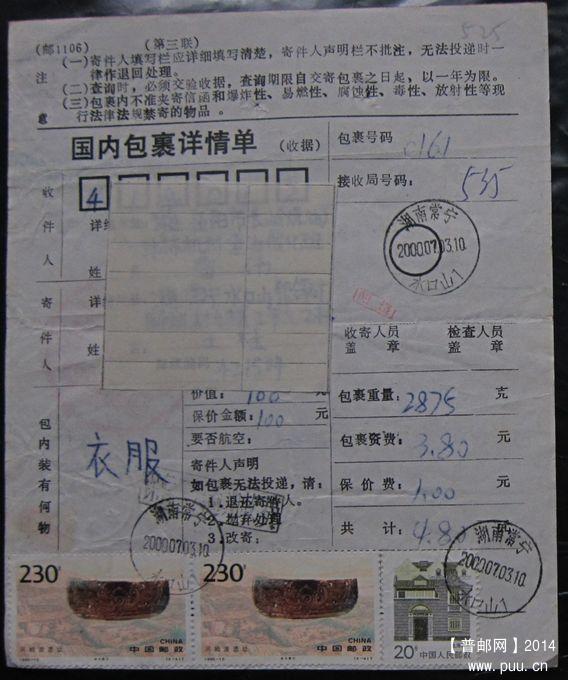 525
(邮1106) (第三联)
注意
(一)寄件人填写栏应详细填写清楚，寄件人声明栏不批注，无法投递时一
律作退回处理。
(二)查询时，必须交验收据，查询期限自交寄包裹之日起，以一年为限。
(三)包裹内不准夹寄信函和爆炸性、易燃性、腐蚀性、毒性、放射性等现
行法律法规禁寄的物品。
国内包裹详情单 (收据)
包裹号码
c161
接收局号码：
535
收件人
4
详
姓
寄件人
详
姓
湖南常宁
2000.07.03.10
水口山1
收寄人员
盖 章
检查人员
盖 章
包内装有何物
衣服
价值： 100 元
保价金额： 100 元
要否航空：
寄件人声明
如包裹无法投递，请：
1.退还寄件人。
2.抛弃处理
3.改寄：
包裹重量： 2875 克
包裹资费： 3.80 元
保价费： 1.00 元
共 计： 4.80 元
湖南常宁
2000.07.03.10
水口山1
湖南常宁
2000.07.03.10
水口山1
230分
CHINA
中国邮政
230分
CHINA
中国邮政
20分
中国人民邮政
【普邮网】2014
www.puu.cn